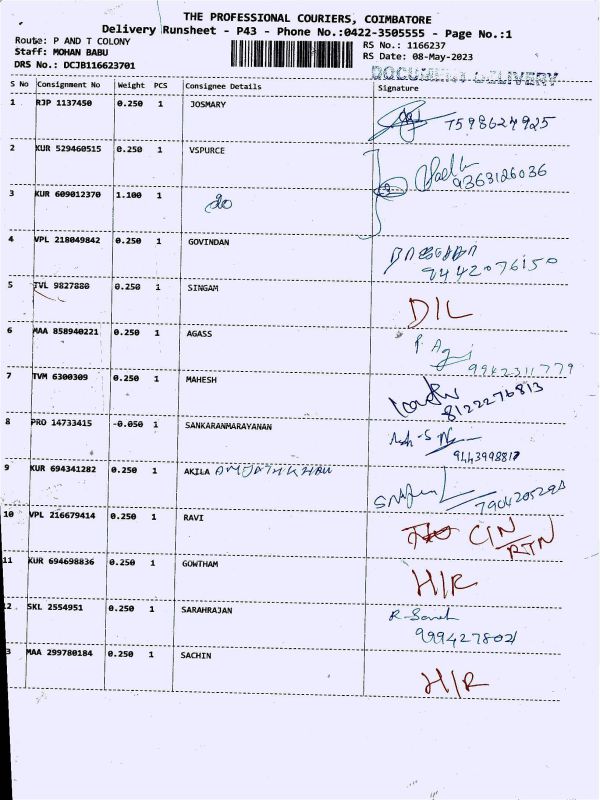 THE PROFESSIONAL COURIERS, COIMBATORE
Delivery Runsheet - P43 - Phone No.:0422-3505555 - Page No.:1
Route: P AND T COLONY
RS No.: 1166237
Staff: MOHAN BABU
RS Date: 08-May-2023
DRS No.: DCJB116623701
DOCUMENT DELIVERY
S No Consignment No Weight PCS Consignee Details Signature
1 RJP 1137450 0.250 1 JOSMARY
7598624925
2 KUR 529460515 0.250 1 VSPURCE
9363126036
3 KUR 609012370 1.100 1 do
4 VPL 218049842 0.250 1 GOVINDAN
9442076150
5 TVL 9827880 0.250 1 SINGAM
D/L
6 MAA 858940221 0.250 1 AGASS
9942311779
7 TVM 6300309 0.250 1 MAHESH
8122276813
8 PRO 14733415 -0.050 1 SANKARANMARAYANAN
9443998817
9 KUR 694341282 0.250 1 AKILA
10 VPL 216679414 0.250 1 RAVI
C/N
RTN
11 KUR 694698836 0.250 1 GOWTHAM
H/R
12 SKL 2554951 0.250 1 SARAHRAJAN
9994278021
3 MAA 299780184 0.250 1 SACHIN
H/R